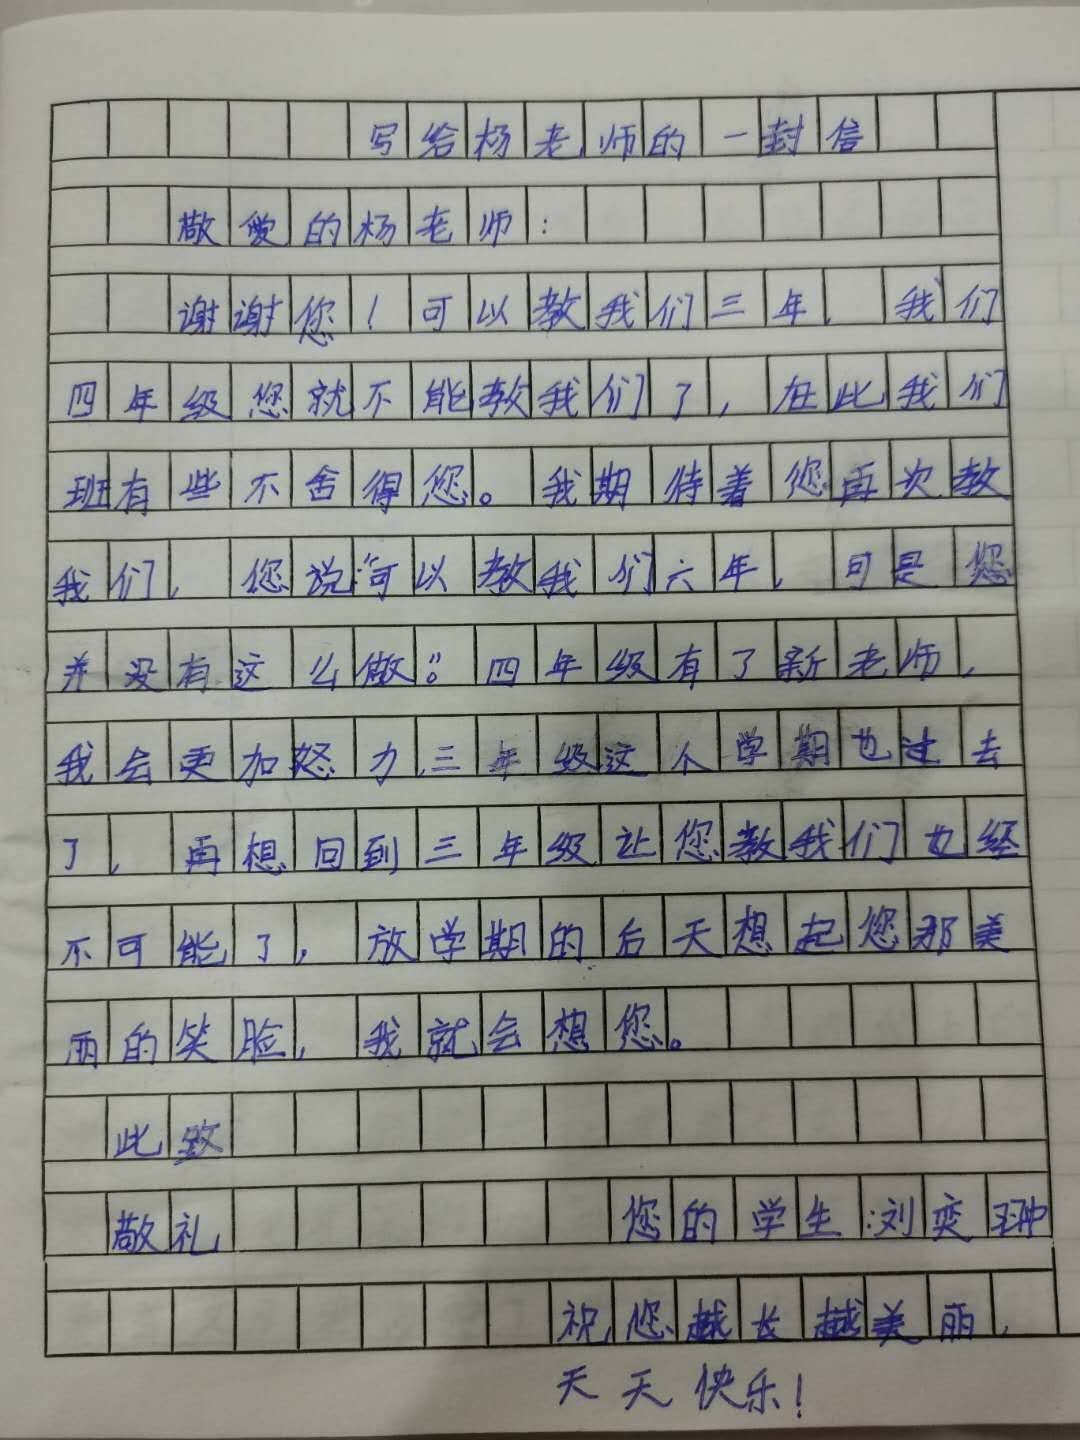 写给杨老师的一封信
敬爱的杨老师：
谢谢您！可以教我们三年，我们
四年级您就不能教我们了，在此我们
班有些不舍得您。我期待着您再次教
我们，您说“可以教我们六年，可是您
并没有这么做”。四年级有了新老师，
我会更加怒力三年级这个学期也过去
了，再想回到三年级让您教我们也经
不可能了，放学期的后天想起您那美
丽的笑脸，我就会想您。
此致
敬礼 您的学生：刘奕翀
祝您越长越美丽，
天天快乐！